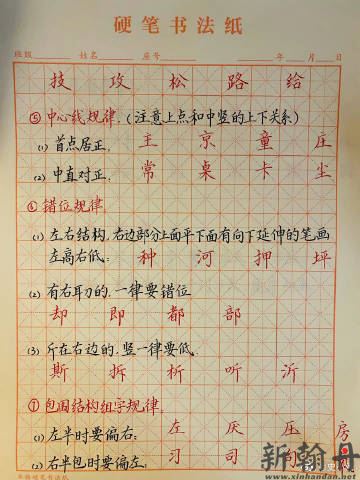 硬笔书法纸
班级 姓名 座号 年 月 日
技 攻 松 路 给
⑤中心线规律.(注意上点和中竖的上下关系)
(1) 首点居正. 主 京 童 庄
(2) 中直对正: 常 桌 卡 尘
⑥错位规律.
(1) 左右结构,右边部分上面平下面有向下延伸的笔画
左高右低: 种 河 押 坪
(2) 有右耳刀的.一律要错位
却 即 都 部
(3) 斤在右边的.竖一律要低.
斯 拆 析 听 沂
⑦包围结构组字规律.
(1) 左半时要偏右: 左 厌 压 房
(2) 右半包时要偏左. 习 司 句
新翰丹
www.xinhandan.com